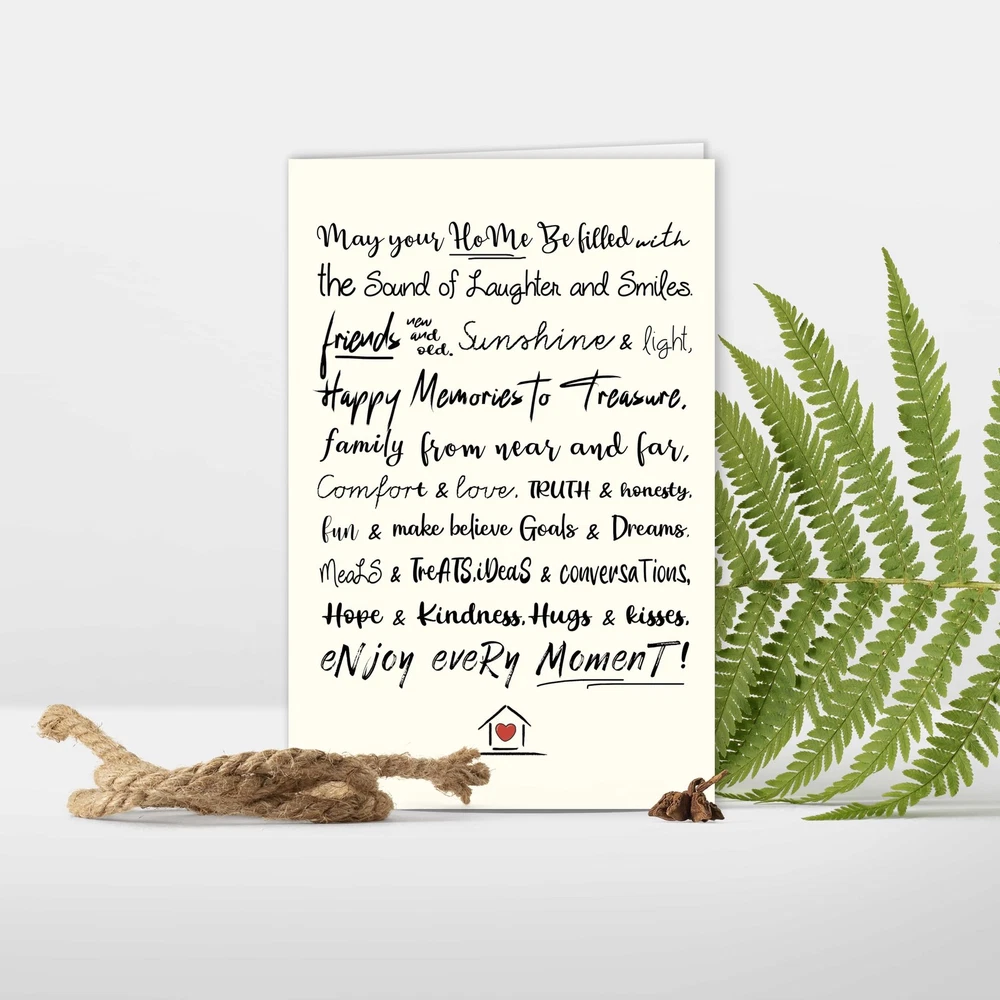 May your HoMe Be filled with
the Sound of Laughter and Smiles.
friends new and old. Sunshine & light,
Happy Memories To Treasure.
family from near and far,
Comfort & love. TRUTH & honesty.
fun & make believe Goals & Dreams.
MeaLS & TreATS.iDeaS & conversaTions,
Hope & Kindness. Hugs & kisses.
eNjoy eveRy MomenT!